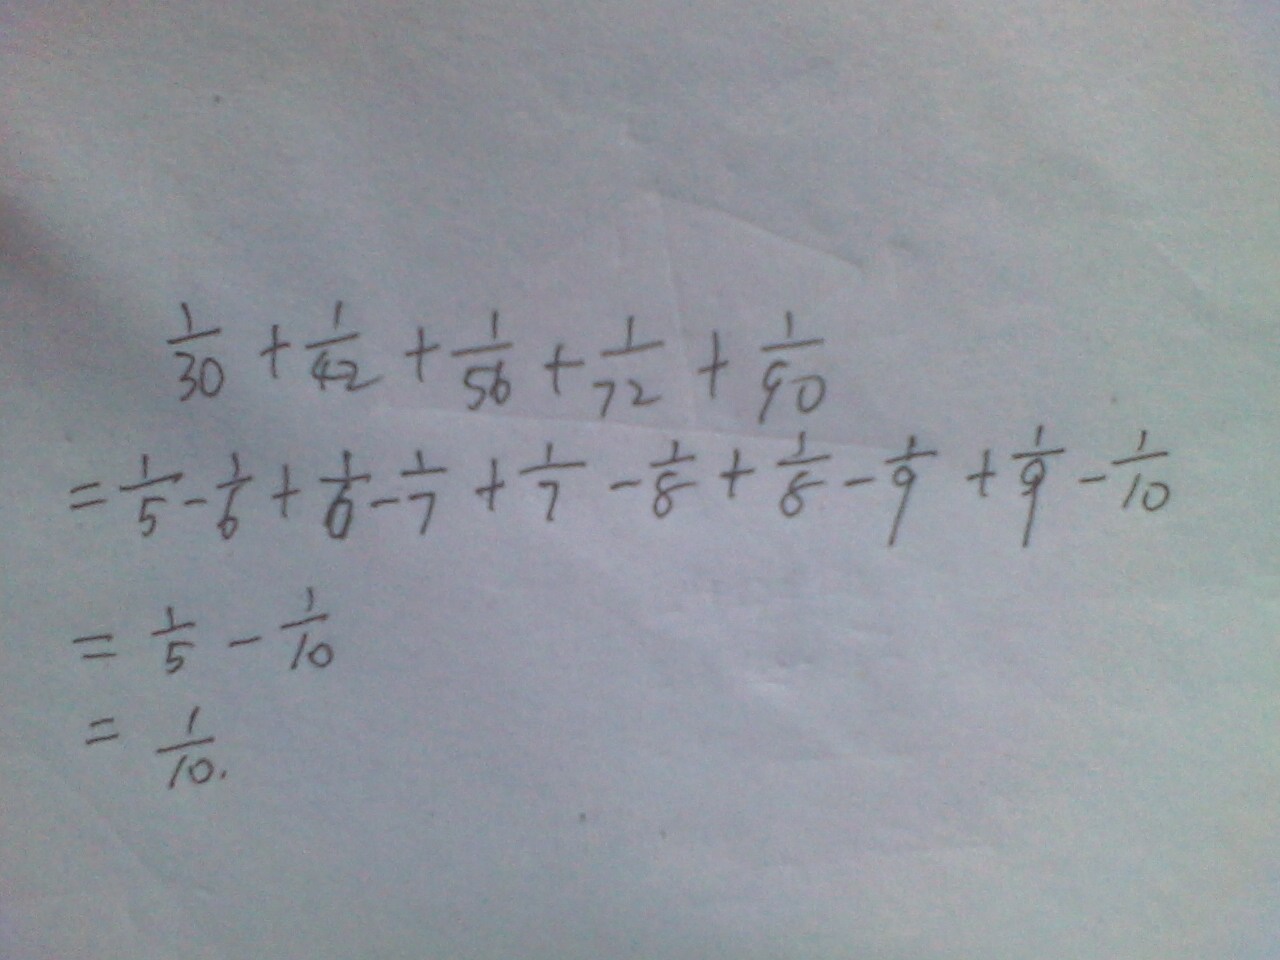 1/30 + 1/42 + 1/56 + 1/72 + 1/90
= 1/5 - 1/6 + 1/6 - 1/7 + 1/7 - 1/8 + 1/8 - 1/9 + 1/9 - 1/10
= 1/5 - 1/10
= 1/10.